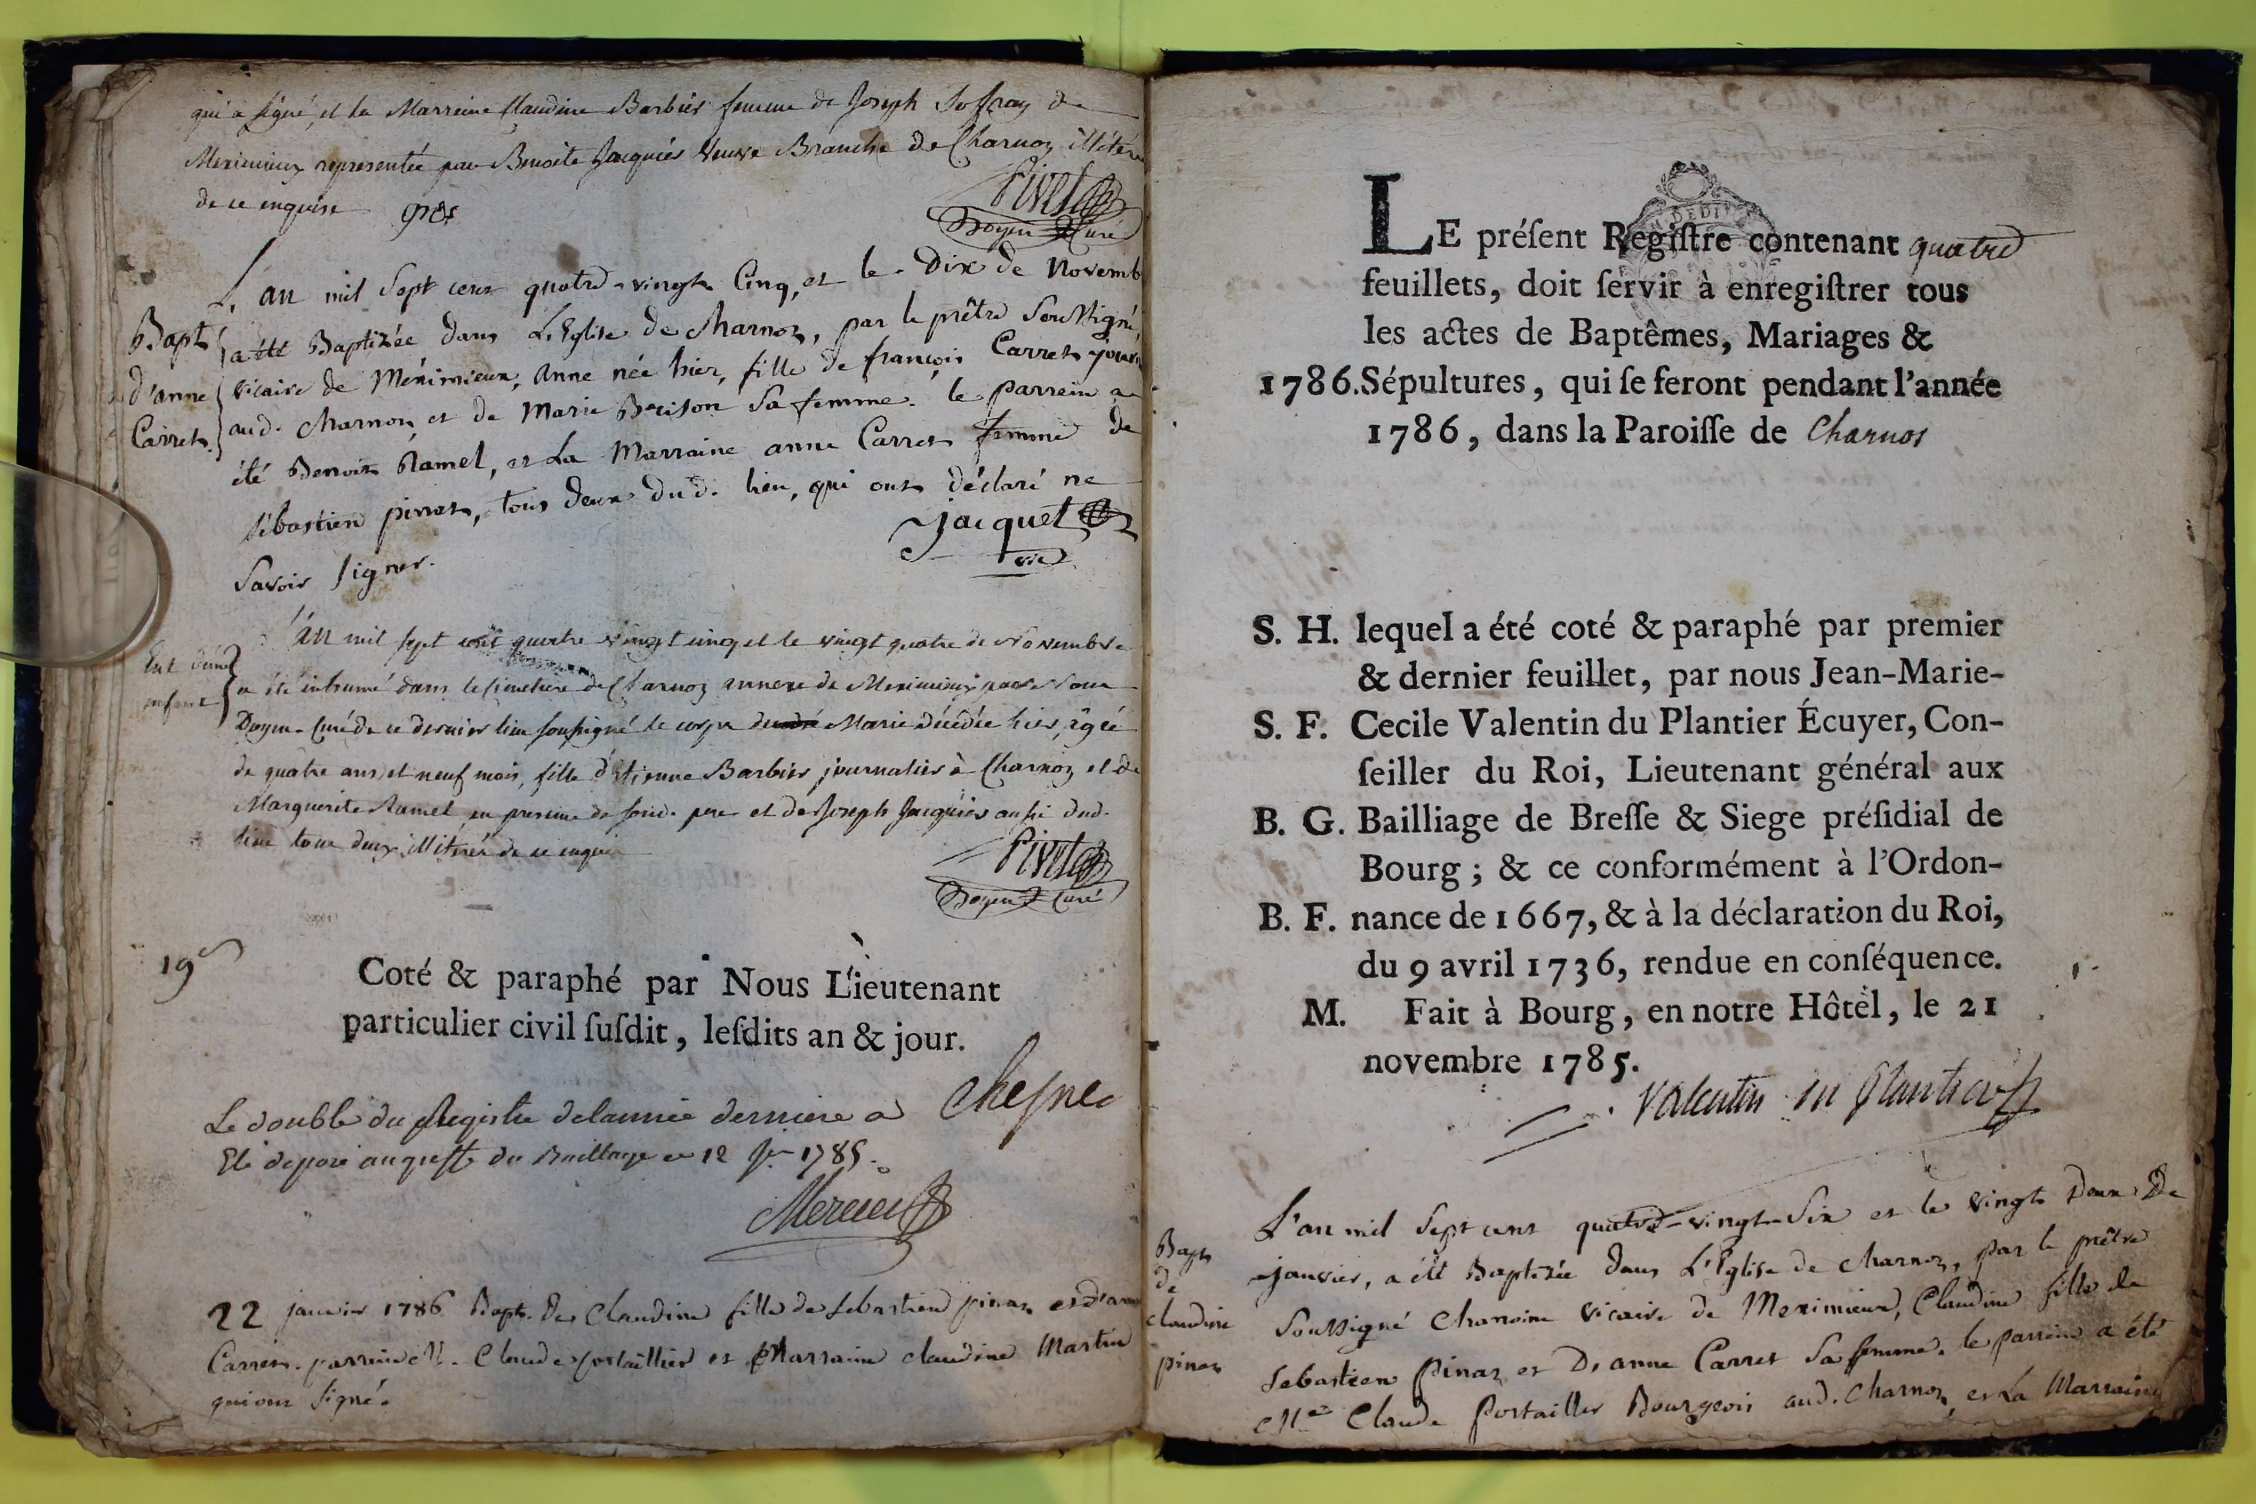 qui a signé, et la Marreine Claudine Barbier femme de Joseph Soffray de
Meximieux representée par Benoite Jacquiés veuve Branche de Charnoz illiteré
de ce enquise
Pivet
Doyen Curé
L'an mil sept cent quatre-vingt Cinq, et le Dix de Novemb
Bapt
d'anne
Carret
a été Baptizée dans L'Eglise de Charnoz, par le prêtre soussigné,
vicaire de Méximieux, Anne née hier, fille de françois Carret journ
aud. Charnoz et de Marie Brison sa femme. le parrein a
été Benoit Ramel, et La Marraine anne Carret femme de
sébastien pinaz, tous deux dud. lieu, qui ont déclaré ne
savoir signer.
Jacquet
vic
L'an mil sept cent quatre vingt cinq et le vingt quatre de Novembre
Ent d'une
enfant
a été inhumé dans le Cimetiere de Charnoz annexe de Meximieux par Nous
Doyen-Curé de ce dernier lieu soussigné le corps de Marie décédée hier, âgée
de quatre ans et neuf mois, fille d'Etienne Barbier journalier à Charnoz et de
Marguerite Ramel en presence de sond. pere et de Joseph Jacquiés aussi dud.
lieu tous deux illitérés de ce enquis
Pivet
Doyen Curé
19e
Coté & paraphé par Nous Lieutenant
particulier civil ſuſdit, leſdits an & jour.
Chesne
Le double du Registre de l'année derniere a
Eté deposé au greffe du Bailliage ce 12 Jer 1785.
Mercier
22 janvier 1786 Bapt. de Claudine fille de Sebastien pinaz et d'anne
Carret. parrein Mr. Claude portallier et Marraine claudine Martin
qui ont signé.
LE préſent Regiſtre contenant quatre
feuillets, doit ſervir à enregiſtrer tous
les actes de Baptêmes, Mariages &
1786. Sépultures, qui ſe feront pendant l'année
1786, dans la Paroiſſe de Charnos
S. H. lequel a été coté & paraphé par premier
& dernier feuillet, par nous Jean-Marie-
S. F. Cecile Valentin du Plantier Écuyer, Con-
ſeiller du Roi, Lieutenant général aux
B. G. Bailliage de Breſſe & Siege préſidial de
Bourg ; & ce conformément à l'Ordon-
B. F. nance de 1667, & à la déclaration du Roi,
du 9 avril 1736, rendue en conſéquence.
M. Fait à Bourg, en notre Hôtel, le 21
novembre 1785.
Valentin du Plantier
L'an mil sept cent quatre-vingt-Six et le vingt Deux De
Bapt
de
claudine
pinaz
janvier, a été Baptizée dans L'Eglise de charnoz, par le prêtre
soussigné chanoine vicaire de Meximieux, Claudine fille de
sebastien Pinaz et D'anne Carret sa femme. le parrein a été
Mr Claude Portallier Bourgeois aud. Charnoz, et La Marraine